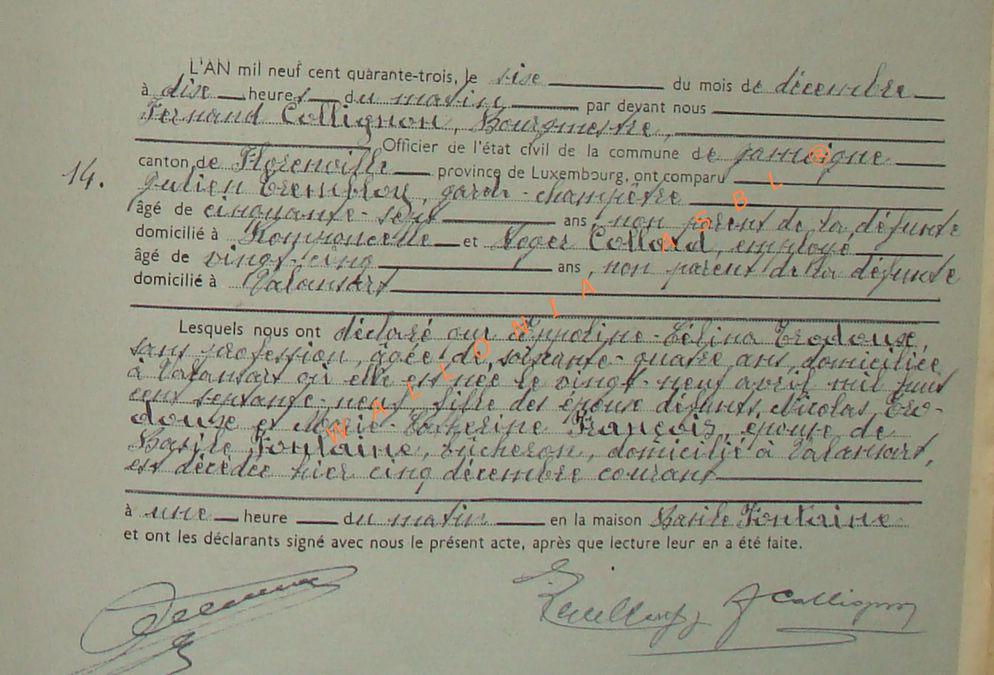 L'AN mil neuf cent quarante-trois, le sise du mois de décembre
à dise heures du matin par devant nous
Fernand Collignon, Bourgmestre,
Officier de l'état civil de la commune de Jamoigne
14.
canton de Florenville province de Luxembourg, ont comparu
Julien garde-champêtre
âgé de cinquante-sept ans, non parent de la défunte
domicilié à et Roger Collard, employé
âgé de vingt-cinq ans, non parent de la défunte
domicilié à Valansart
Lesquels nous ont déclaré que Célina Trodoux,
sans profession, âgée de soixante-quatre ans, domiciliée
à Valansart où elle est née le vingt-neuf avril mil huit
cent septante-neuf, fille des époux défunts, Nicolas Tro-
doux et Marie-Catherine François, épouse de
Basile Fontaine, bûcheron, domicilié à Valansart,
est décédée hier cinq décembre courant
à une heure du matin en la maison Basile Fontaine
et ont les déclarants signé avec nous le présent acte, après que lecture leur en a été faite.
Collignon
WALLONIA ASBL @